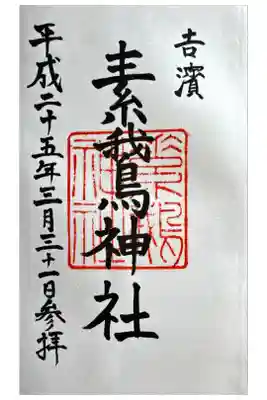 吉濱
素鵞神社
平成二十五年三月三十一日参拝